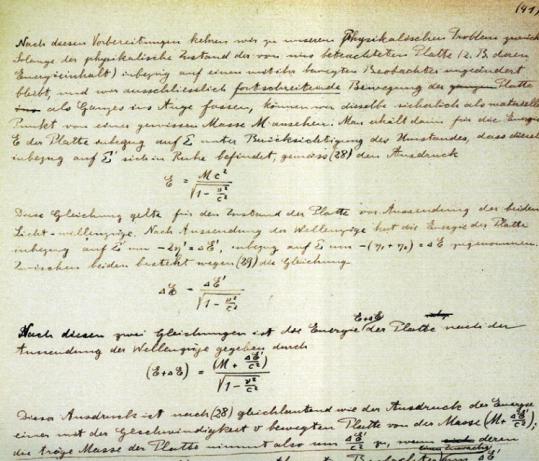 (41)
Nach diesen Vorbereitungen kehren wir zu unserem physikalischen Problem zurück
Solange der physikalische Zustand der von uns betrachteten Platte (z. B. deren
Energieinhalt) inbezug auf einen mit ihr bewegten Beobachter ungeändert
bleibt, und wir ausschliesslich fortschreitende Bewegung der Platte
als Ganzes ins Auge fassen, können wir dieselbe sicherlich als materiellen
Punkt von einer gewissen Masse M ansehen. Man erhält dann für die Energie
E der Platte inbezug auf Σ unter Berücksichtigung des Umstandes, dass dieselbe
inbezug auf Σ' sich in Ruhe befindet, gemäss (28) den Ausdruck
E = Mc² / √(1 - v²/c²)
Diese Gleichung gelte für den Zustand der Platte vor Aussendung der beiden
Licht-wellenzüge. Nach Aussendung der Wellenzüge hat die Energie der Platte
inbezug auf Σ' um -2η' = ΔE', inbezug auf Σ um -(η₁ + η₂) = ΔE zugenommen.
Zwischen beiden besteht wegen (29) die Gleichung
ΔE = ΔE' / √(1 - v²/c²)
Nach diesen zwei Gleichungen ist die Energie E+ΔE der Platte nach der
Aussendung der Wellenzüge gegeben durch
(E+ΔE) = (M + ΔE'/c²) / √(1 - v²/c²)
Dieser Ausdruck ist nach (28) gleichlautend wie der Ausdruck der Energie
einer mit der Geschwindigkeit v bewegten Platte von der Masse (M + ΔE'/c²);
die träge Masse der Platte nimmt also um ΔE'/c² zu, wenn deren